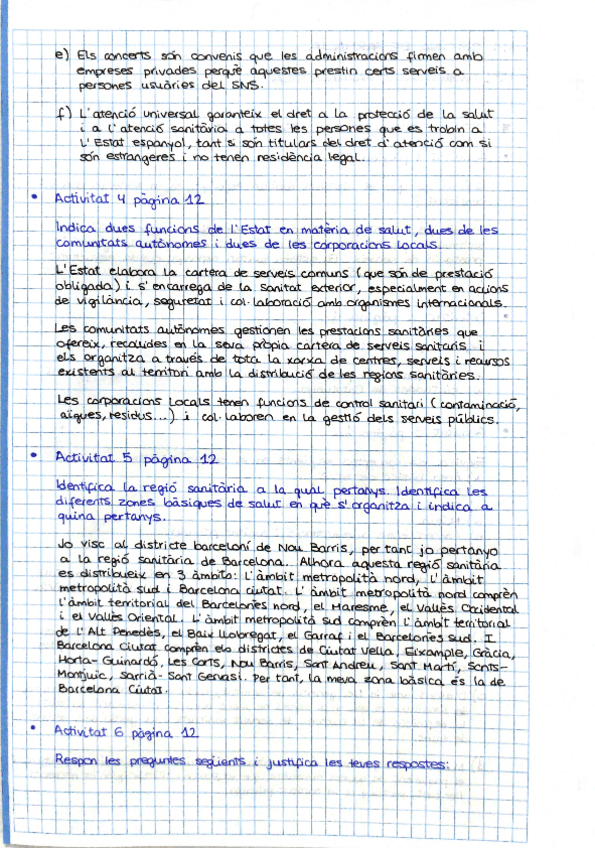 e) Els concerts són convenis que les administracions firmen amb
empreses privades perquè aquestes prestin certs serveis a
persones usuàries del SNS.
f) L'atenció universal garanteix el dret a la protecció de la salut
i a l'atenció sanitària a totes les persones que es trobin a
l'Estat espanyol, tant si són titulars del dret d'atenció com si
són estrangeres i no tenen residència legal.
• Activitat 4 pàgina 12
Indica dues funcions de l'Estat en matèria de salut, dues de les
comunitats autònomes i dues de les corporacions locals.
L'Estat elabora la cartera de serveis comuns (que són de prestació
obligada) i s'encarrega de la sanitat exterior, especialment en accions
de vigilància, seguretat i col·laboració amb organismes internacionals.
Les comunitats autònomes gestionen les prestacions sanitàries que
ofereix, recollides en la seva pròpia cartera de serveis sanitaris i
els organitza a través de tota la xarxa de centres, serveis i recursos
existents al territori amb la distribució de les regions sanitàries.
Les corporacions locals tenen funcions de control sanitari (contaminació,
aigües, residus...) i col·laboren en la gestió dels serveis públics.
• Activitat 5 pàgina 12
Identifica la regió sanitària a la qual pertanys. Identifica les
diferents zones bàsiques de salut en què s'organitza i indica a
quina pertanys.
Jo visc al districte barceloní de Nou Barris, per tant jo pertanyo
a la regió sanitària de Barcelona. Alhora aquesta regió sanitària
es distribueix en 3 àmbits: L'àmbit metropolità nord, l'àmbit
metropolità sud i Barcelona ciutat. L'àmbit metropolità nord comprèn
l'àmbit territorial del Barcelonès nord, el Maresme, el Vallès Occidental
i el Vallès Oriental. L'àmbit metropolità sud comprèn l'àmbit territorial
de l'Alt Penedès, el Baix Llobregat, el Garraf i el Barcelonès Sud. I
Barcelona Ciutat comprèn els districtes de Ciutat Vella, Eixample, Gràcia,
Horta-Guinardó, Les Corts, Nou Barris, Sant Andreu, Sant Martí, Sants-
Montjuïc, Sarrià-Sant Gervasi. Per tant, la meva zona bàsica és la de
Barcelona Ciutat.
• Activitat 6 pàgina 12
Respon les preguntes següents i justifica les teves respostes: